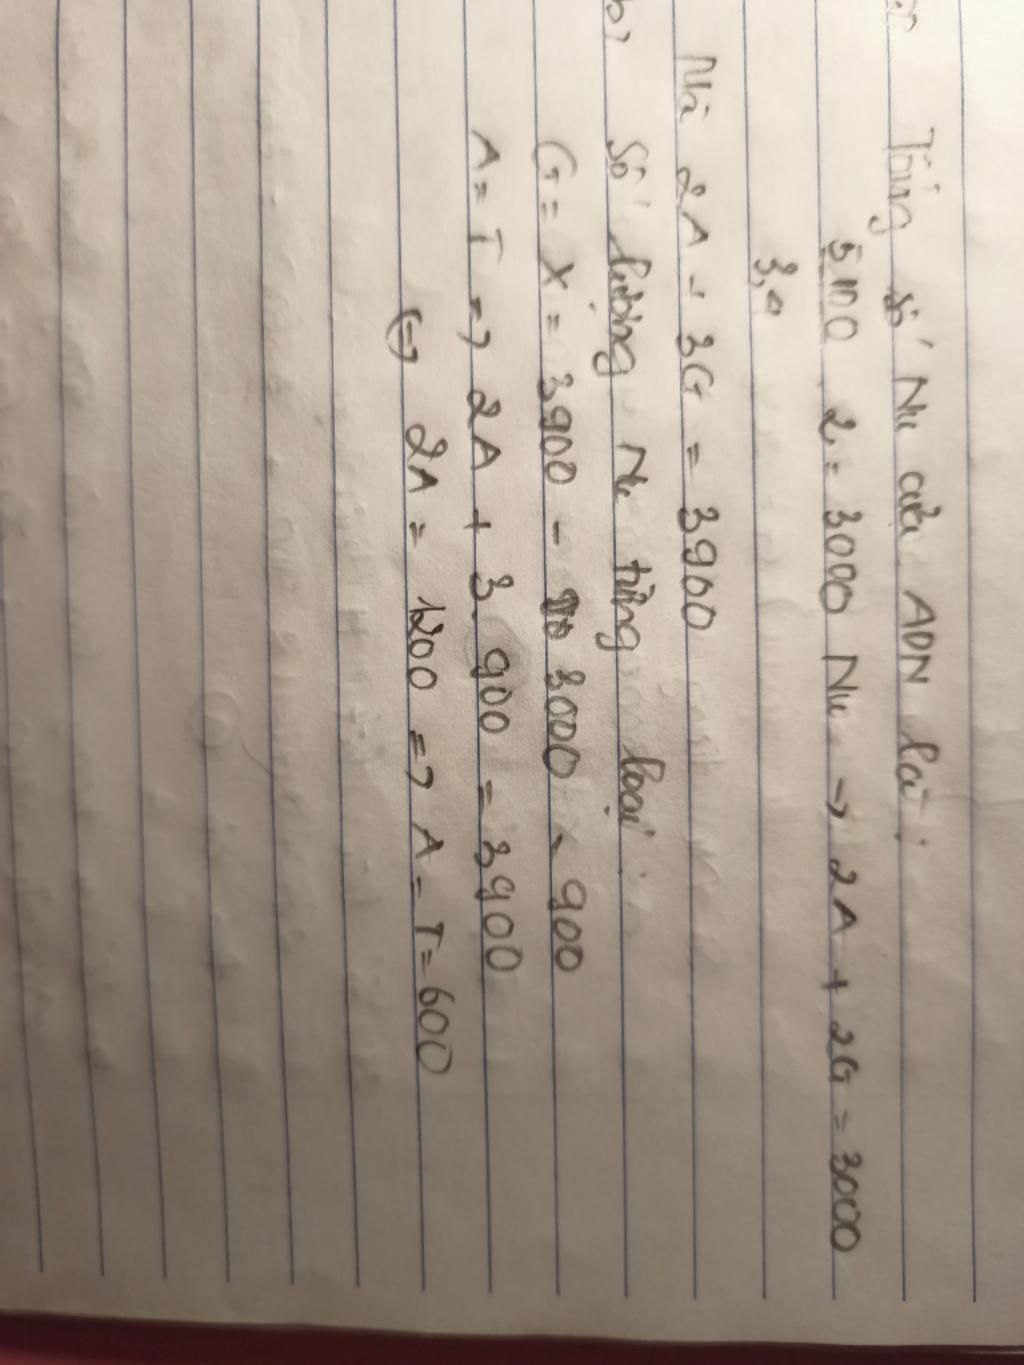 Tổng số Nu của ADN là:
5100 . 2 = 3000 Nu → 2A + 2G = 3000
3,4
Mà 2A + 3G = 3900
b, Số lượng Nu từng loại
G = X = 3900 - 3000 = 900
A = T => 2A + 3.900 = 3900
(=) 2A = 1200 => A = T = 600